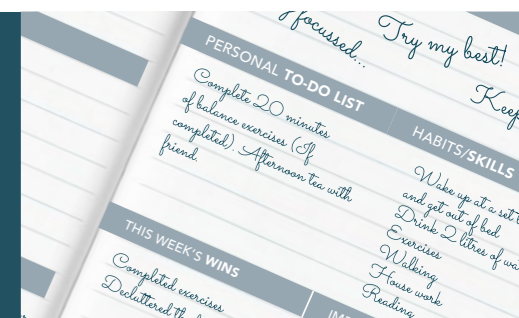 focussed...
Try my best!
Keep
PERSONAL TO-DO LIST
Complete 20 minutes
of balance exercises (If
completed). Afternoon tea with
friend.
HABITS/SKILLS
Wake up at a set
and get out of bed
Drink 2 litres of
Exercises
Walking
House work
Reading
THIS WEEK'S WINS
Completed exercises
Decluttered